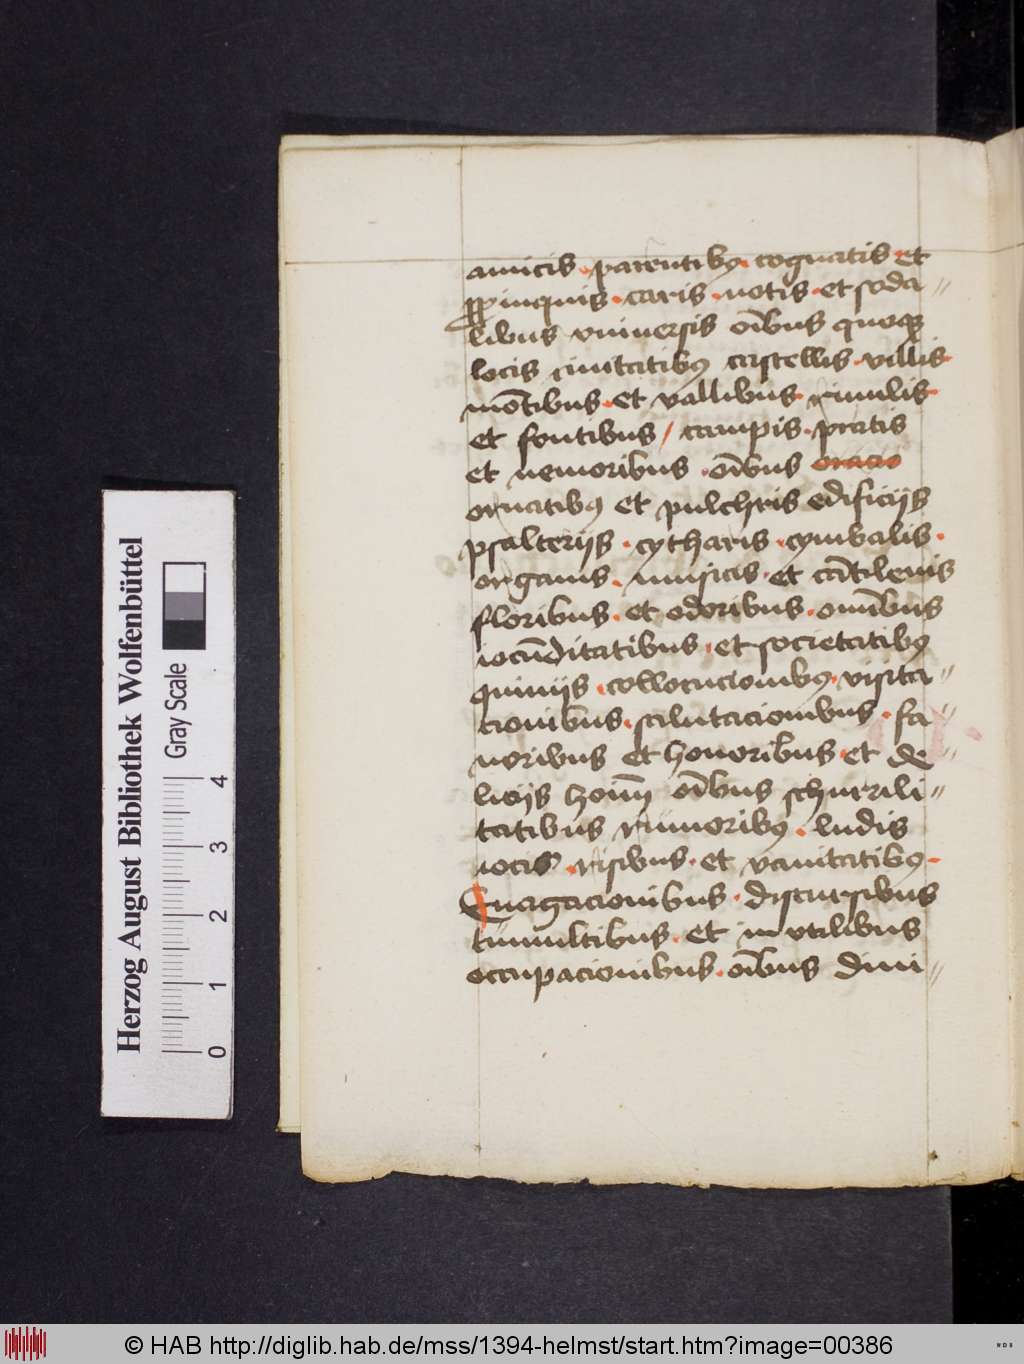 amicis parentibꝯ cognatis et
ꝓpinquis caris notis et soda〃
libus vniuersis oībus quoqꝫ
locis ciuitatibꝯ castellis villis
mōtibus et vallibus riuulis
et fontibus / campis pratis
et nemoribus oībus oracio
ornatibꝯ et pulchris edificijs
psalterijs cytharis cymbalis
organis musicis et cātilenis
floribus et odoribus omībus
iocūditatibus et societatibꝯ
quiuijs collocucionibꝯ visita〃
cionibus salutacionibus fa〃
uoribus et honoribus et de〃
licijs hoīm oībus schurrili〃
tatibus rumoribꝯ ludis
iocis risibus et vanitatibꝯ
Euagacionibus discursibus
tumultibus et in vtilibus
occupacionibus oībus diui〃
Herzog August Bibliothek Wolfenbüttel
Gray Scale
0 1 2 3 4
© HAB http://diglib.hab.de/mss/1394-helmst/start.htm?image=00386